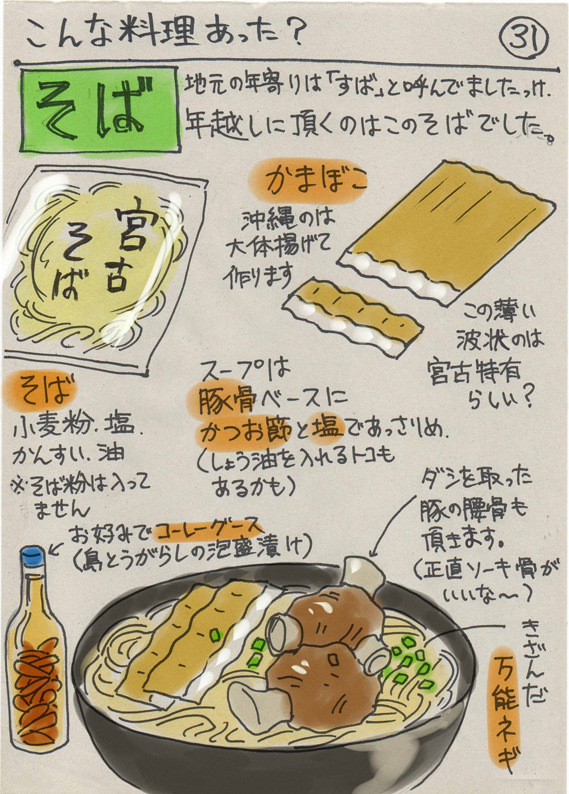 こんな料理あった?
31
そば
地元の年寄りは「すば」と呼んでましたっけ.
年越しに頂くのはこのそばでした。
かまぼこ
沖縄のは
大体揚げて
作ります
宮古
そば
この薄い
波状のは
宮古特有
らしい?
そば
小麦粉.塩.
かんすい.油
※そば粉は入って
ません
スープは
豚骨ベースに
かつお節と塩であっさりめ.
(しょう油を入れるトコも
あるかも)
ダシを取った
豚の腰骨も
頂きます。
(正直ソーキ骨が
いいな〜)
お好みでコーレーグース
(島とうがらしの泡盛漬け)
きざんだ
万能ネギ